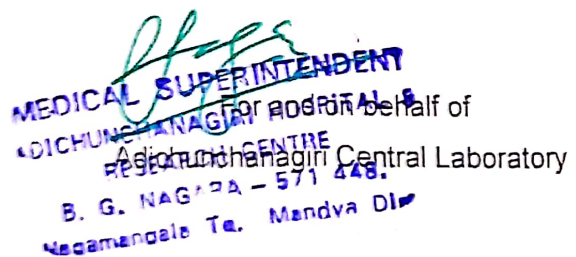 MEDICAL SUPERINTENDENT
ADICHUNCHANAGIRI HOSPITAL &
RESEARCH CENTRE
B. G. NAGARA - 571 448.
Nagamangala Tq. Mandya Dist
For and on behalf of
Adichunchanagiri Central Laboratory